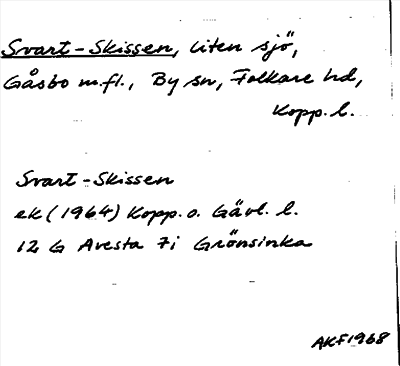 Svart-Skissen, liten sjö,
Gåsbo m.fl., By sn, Folkare hd,
Kopp. l.
Svart-Skissen
ek (1964) Kopp. o. Gävl. l.
12 G Avesta 7i Grönsinka
AKF1968